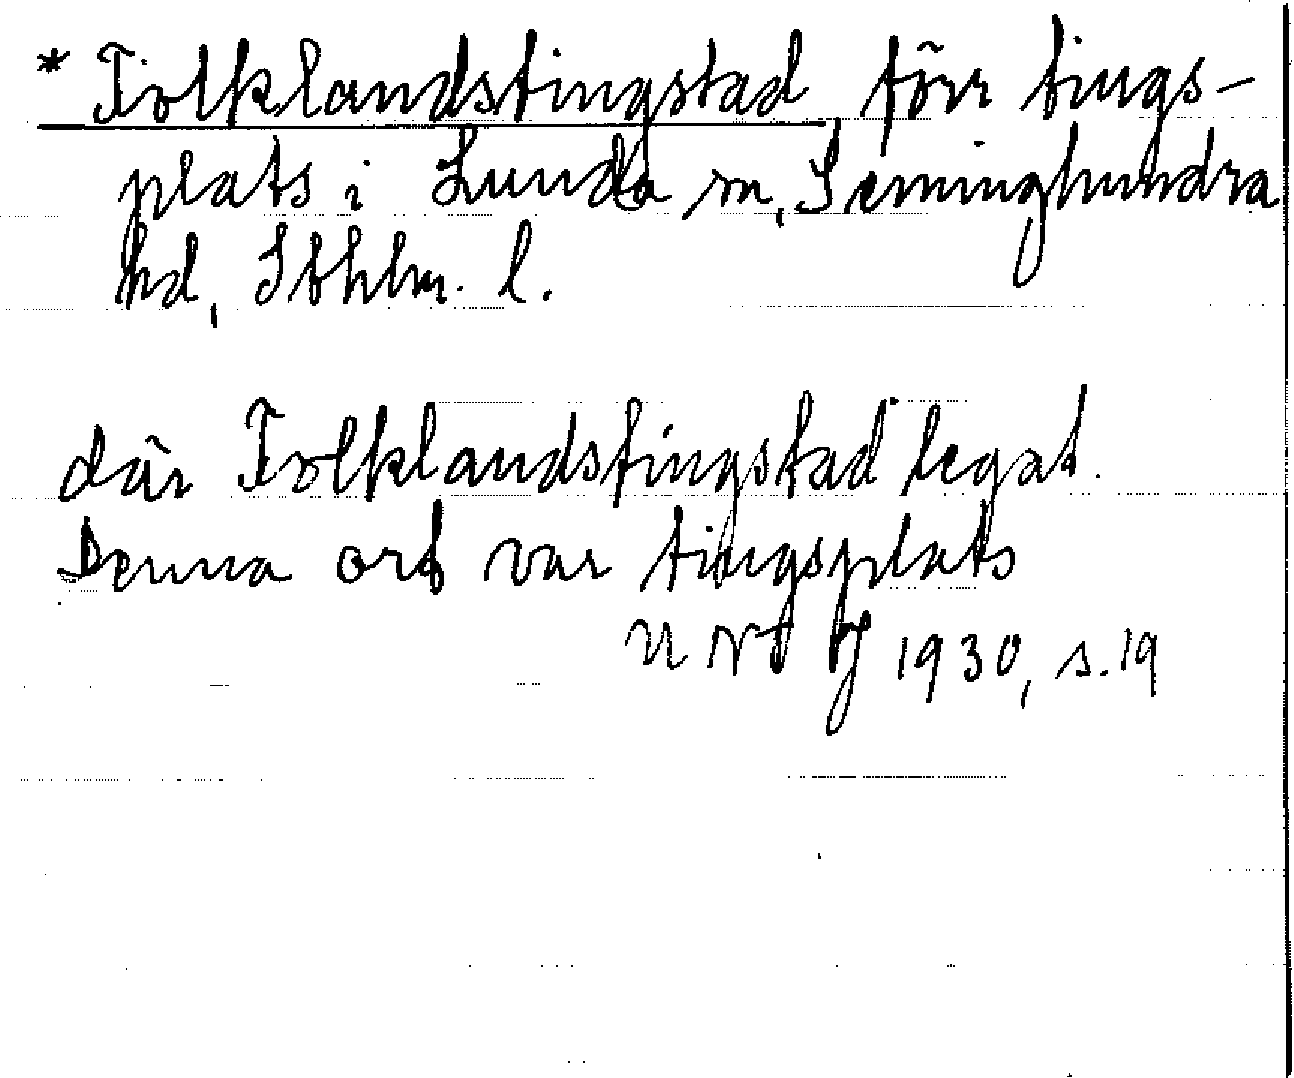 * Folklandstingstad, förr tings-
plats i Lunda sn, Seminghundra
hd, Sthlm. l.
där Folklandstingstad legat.
Denna ort var tingsplats
UNT 1930, s. 19